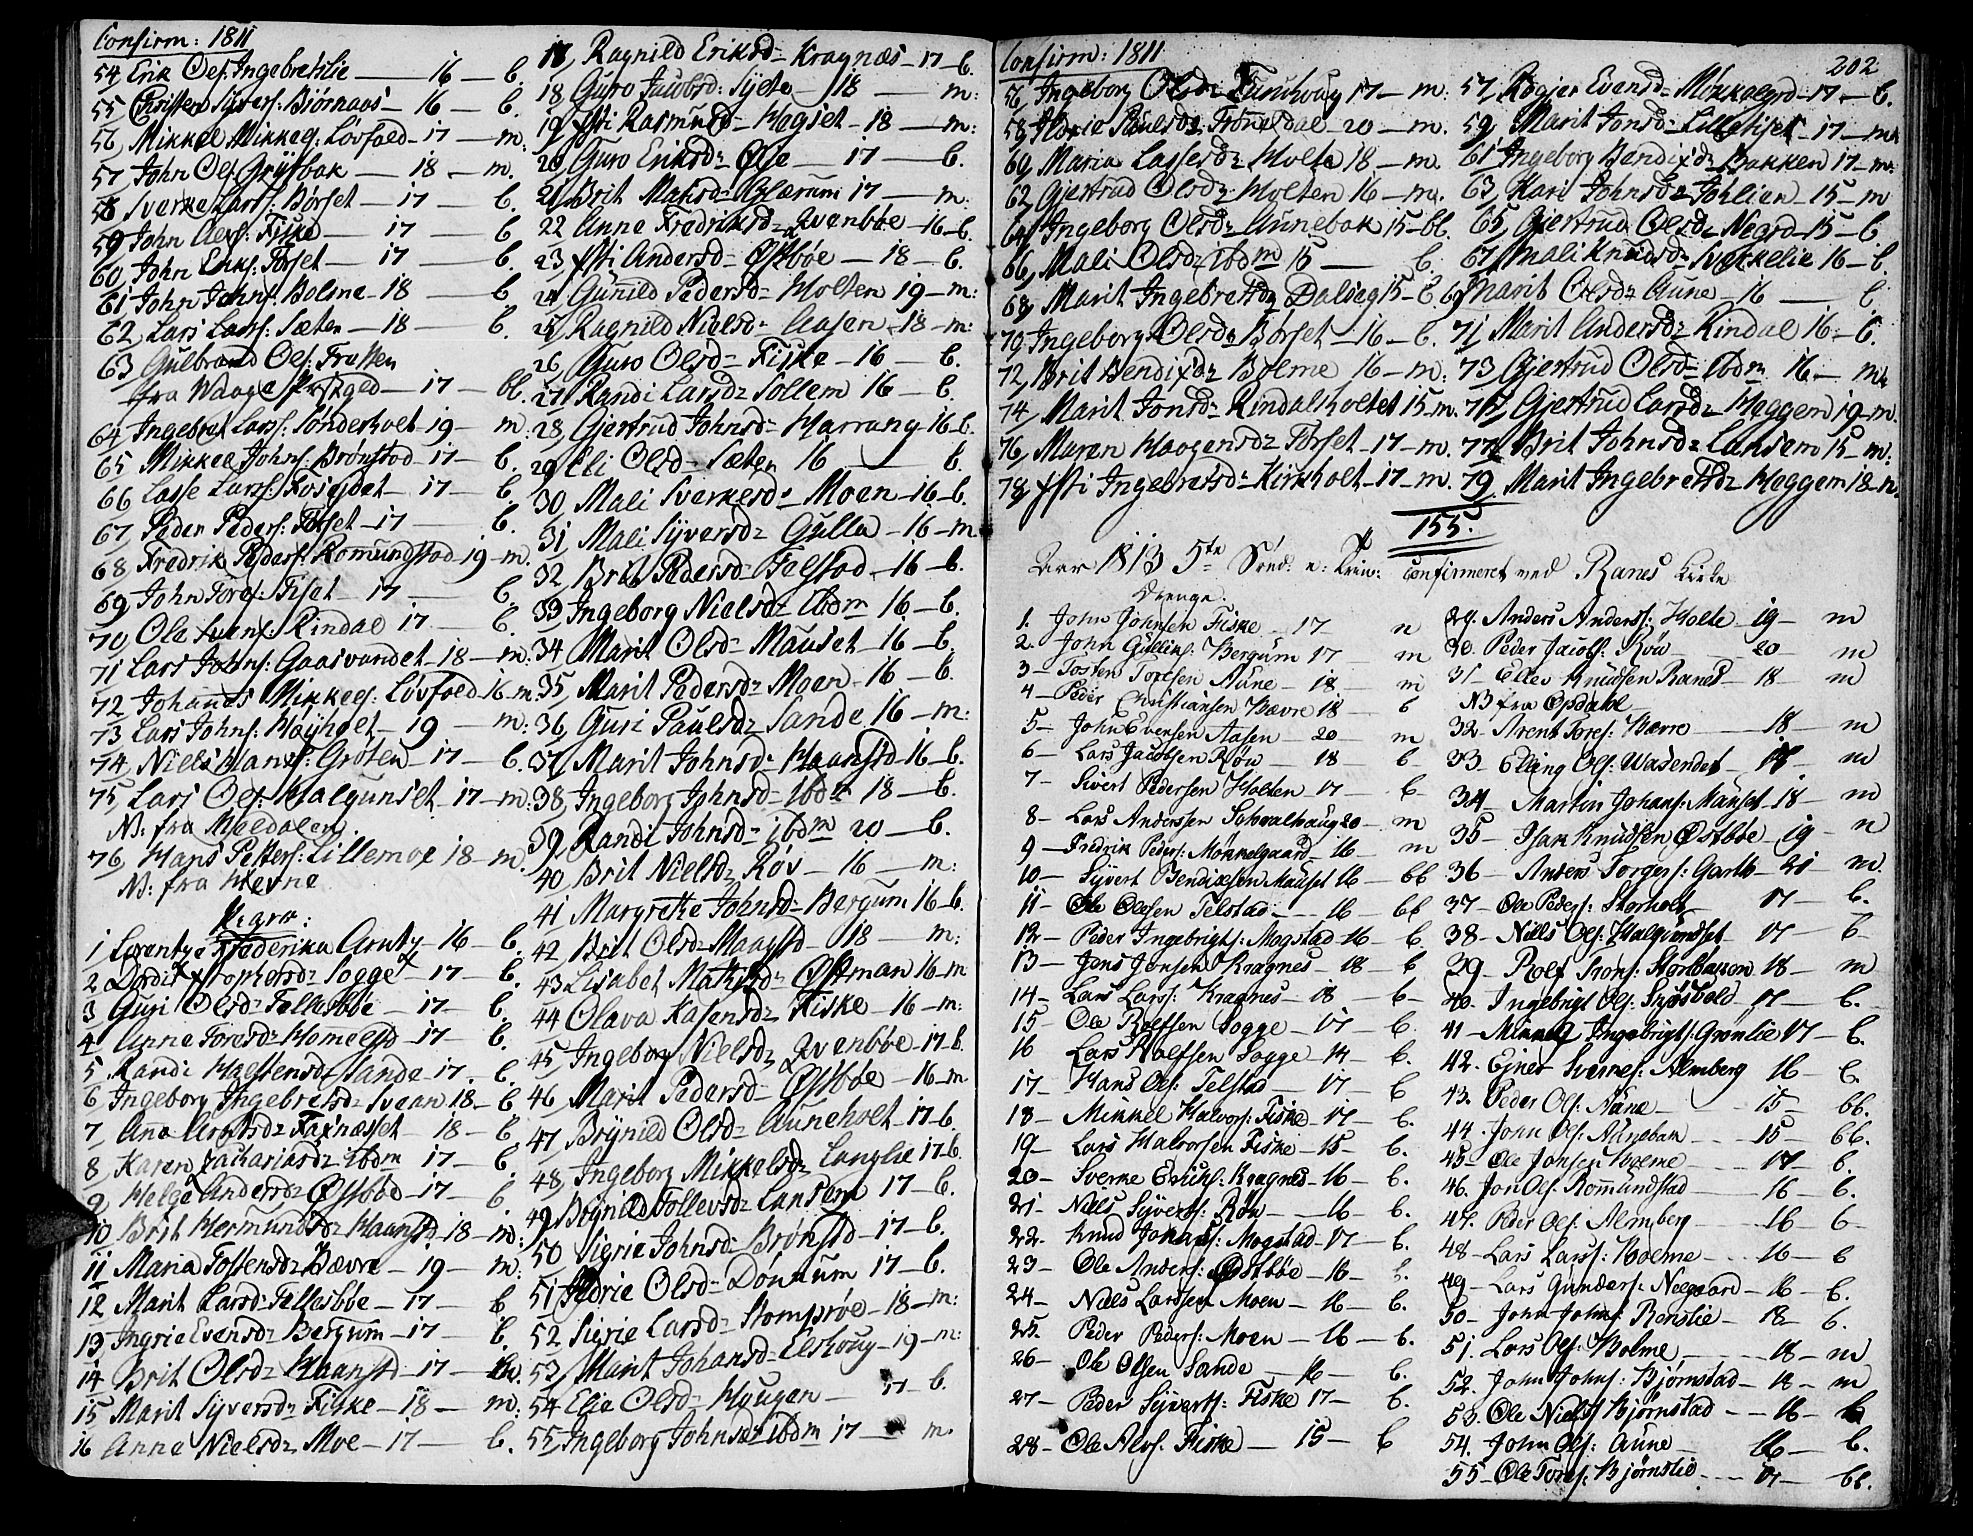 Confirm: 1811
54 Erik Ols: Ingebretslie — 16 — b.
55 Christen Siversl: Biørnaas — 16 — b.
56 Mikkel Mikkels: Løvfold — 17 — m.
57 John Ols: Grytbak — 18 — m.
58 Sverke Larss: Børset — 17 — b.
59 John Ols: Fiske — 17 — b.
60 John Eriks: Torset — 17 — b.
61 John Johns: Bolme — 18 — b.
62 Lars Larss: Sæter — 18 — b.
63 Gulbrand Ols:
fra Waage Præstegield — 17 — bl.
64 Ingebret Larss: Sønderholt 19 — m.
65 Mikkel Johns: Brønstad — 17 — b.
66 Lasse Larss: — 17 — b.
67 Peder Peders: Torset — 17 — b.
68 Fredrik Peders: Romundstad 19 — m.
69 John Tores: Tiset — 17 — b.
70 Ole Svens: Rindal 17 — b.
71 Lars Johns: Gaasvandet — 18 — m:
72 Johannes Mikkels: Løvfold 16 m
73 Lars Johns: Høyholt — 19 — m:
74 Niels Hans: Grøten — 17 — b.
75 Lars Ols: Halgunset — 17 — m:
N: fra Meldalen
76 Hans Petters: Lillemoe 18 — m.
N: fra Hevne
Pigar:
1 Lorentze Frederika Arntz — 16 — b.
2 Dordi Sogge — 17 — b.
3 Guri Olsd: Tellesbøe — 17 — b.
4 Anne Toresd: — 17 — b.
5 Randi Halstensd: Sande — 17 — b.
6 Ingeborg Ingebretsd: Svean 18 — b
7 Ane Arntsd: — 18 — b
8 Karen Zachariasd: ibdm 17 — b.
9 Helge Andersd: Østbøe — 17 — b
10 Brit Hermundsd: Haanst: 18 — m:
11 Maria Tostensd: Bævre — 19 — m:
12 Marit Larsd: Tellesbøe — 17 — b
13 Ingrie Evensd: Bergum — 17 — b.
14 Brit Olsd: Haanstd — 17 — m.
15 Marit Syversd: Fiske — 18 — m.
16 Anne Nielsd: Moe — 17 — b.
17 Ragnild Eriksd: Kragnæs — 17 — b.
18 Guro Jacobsd: Sylte — 18 — m:
19 Rasmusd: Mogset — 18 — m:
20 Guro Eriksd: Øie — 17 — b.
21 Brit Madsd: Glærum 17 — m:
22 Anne Fredriksd: Qvenbøe — 16 — b.
23 Andersd: Østbøe — 18 — b.
24 Gunnild Pedersd: Holten 19 — m:
25 Ragnild Nielsd: Aasen — 18 — m:
26 Guro Olsd: Fiske — 16 — b.
27 Randi Larsd: Sollem 16 — b.
28 Gjertrud Johnsd: Harrang 16 b.
29 Eli Olsd: Sæter 16 — b.
30 Mali Sverkesd: Moen — 16 — b.
31 Mali Syversd: Gulla — 16 — m
32 Brit Pedersd: Telstad — 16 — b.
33 Ingeborg Nielsd: ibdm 16 — b.
34 Marit Olsd: Mauset — 16 — b.
35 Marit Pedersd: Moen — 16 — b.
36 Guri Paulsd: Sande 16 — m:
37 Marit Johnsd: Haanstd 16 — b.
38 Ingeborg Johnsd: ibdm 18 — b.
39 Randi Johnsd: ibdm 20 — b.
40 Brit Nielsd: Røv — 16 — m:
41 Margrethe Johnsd: Bergum 16 b.
42 Brit Olsd: Haanstd — 18 — m:
43 Lisabet Østman 16 — m
44 Olava Fiske — 16 — m:
45 Ingeborg Nielsd: Qvenbøe — 17 b.
46 Marit Pedersd: Østbøe — 16 m
47 Brynild Olsd: Auneholt 17 b.
48 Ingeborg Mikkelsd: Langlie 17 b.
49 Brynild Tollevsd: Lansem 17 — b.
50 Sigrie Johnsd: Brønstd — 17 — b.
51 Olsd: Dønnum 17 — b.
52 Sigrie Larsd: Stomprøe — 18 — m:
53 Marit Johansd: — 19 — m:
54 Elie Olsd: Hougen — 17 — b.
55 Ingeborg Johnsd: ibdm 17 — m
Confirm: 1811
202
56 Ingeborg Olsd: 17 — m:
57 Evensd: Møkkelgrd — 17 — b.
58 Marie Paulsd: Trønesdal — 20 — m.
59 Marit Jonsd: — 17 — m
60 Maria Lassesd: Holte 18 — m.
61 Ingeborg Bendixd: Bakken 17 — m.
62 Gjertrud Olsd: Holten 16 — m.
63 Kari Johnsd: — 15 — m
64 Ingeborg Olsd: Aunebak 15 — bl.
65 Gjertrud Olsd: Negrd — 15 — b
66 Mali Olsd: ibdm 15 — b.
67 Mali Knudsd: 16 — b.
68 Marit Ingebretsd: Dalseg 15 — b
69 Marit Olsd: Aune — 16 — b
70 Ingeborg Olsd: Børset — 16 — b.
71 Marit Andersd: Rindal 16 — b.
72 Brit Bendixd: Bolme 16 — m:
73 Gjertrud Olsd: ibdm 16 — m
74 Marit Jonsd: Rindalholtet 15 m.
75 Gjertrud Larsd: Heggem 19 — m.
76 Maren Haagensd: Torset — 17 — m.
77 Brit Johnsd: Lansem 15 — m:
78 Ingebretsd: Kirkholt — 17 — m.
79 Marit Ingebretsd: Heggem 18 — m
155.
Aar 1813 5te Sønd. e: Trin: confirmeret ved Ranes Kirke
Drenge.
1. John Johnsen Fiske — 17 — m
2. John Gulliks: Bergum 17 — m
3 — Tosten Toresen Aune — 18 — m
4 — Peder Christiansen Bævre 18 — b
5 — John Evensen Aasen — 20 — m
6 — Lars Jacobsen Røv — 18 — b
7 — Sivert Pedersen Holten 17 — b
8 — Lars Anderssen Schoalhaug 20 — m
9 — Fredrik Peders: Møkkelgaard — 16 — m
10 — Sivert Bendixsen Mauset 16 — bb
11 — Ole Olesen Telstad — 16 — bb
12 — Peder Ingebrigts: Mogstad — 16 — b
13 — Jens Jonsen Kragnes — 18 — b
14 — Lars Larss: Kragnes — 18 — b
15 — Ole Rolfsen Sogge — 17 — b.
16 Lars Rolfsen Sogge — 14 — b.
17 — Hans Ols: Telstad — 17 — b
18 — Mikkel Halvors: Fiske — 17 — b.
19 — Lars Halvorsen Fiske — 15 — b.
20 — Sverke Eriks: Kragnes — 16 — b.
21 — Niels Syverts: Røv — 16 — b.
22 — Knud Johans: Mogstad — 17 — b.
23 — Ole Anders: Østbøe — 16 — b.
24 — Niels Larssen Moen — 16 — b.
25. Peder Peders: Moen — 16 — b.
26 — Ole Olsen Sande — 16 — b.
27 — Peder Syverts: Fiske 17 — b.
28 — Ole Alvs: Fiske — 15 — b
29. Anders Anderss: Holte — 19 — m
30. Peder Jacobs: Røv — 20 — m
31 — Ellev Knudsen Ranes — 18 — m
NB fra Opdahl
32. Arent Tores: Bævre — 18 — m
33 — Elling Ols: Wasendet — 18 — m
34 — Martin Johans: Mauset 18 — m
35 — Isak Knudsen Østbøe — 19 — m
36 — Anders Torgers: Garth — 21 — m.
37 — Ole Peders: Storholt — 17 — b.
38 — Niels Ols: Halgundset — 17 — b
39 — Rolf Irons: 18 — m
40 — Ingebrigt Ols: — 17 — b.
41 — Mikkel Ingebrigts: Grønlie 17 — b.
42. Ejner Sverres: Almberg 16 — b.
43. Peder Ols: Aune — 15 — bb.
44. John Ols: Aunebak — 15 — bb.
45 — Ole Jonsen Bolme — 17 — b.
46. Jon Ols: Romundstad — 16 — b.
47. Peder Ols: Almberg — 16 — b
48 — Lars Larss: Bolme — 16 — b
49 — Lars Gunders: Negaard — 16 — b.
50 — John Johns: Renslie — 18 — b.
51. Lars Ols: Bolme — 18 — m
52. John Johns: Bjørnstad — 18 — m
53. Ole Niels: Bjørnstad — 16 — b
54. John Ols: Aune — 16 — b.
55 — Ole Tores: Bjørnslie — 17 — bb.